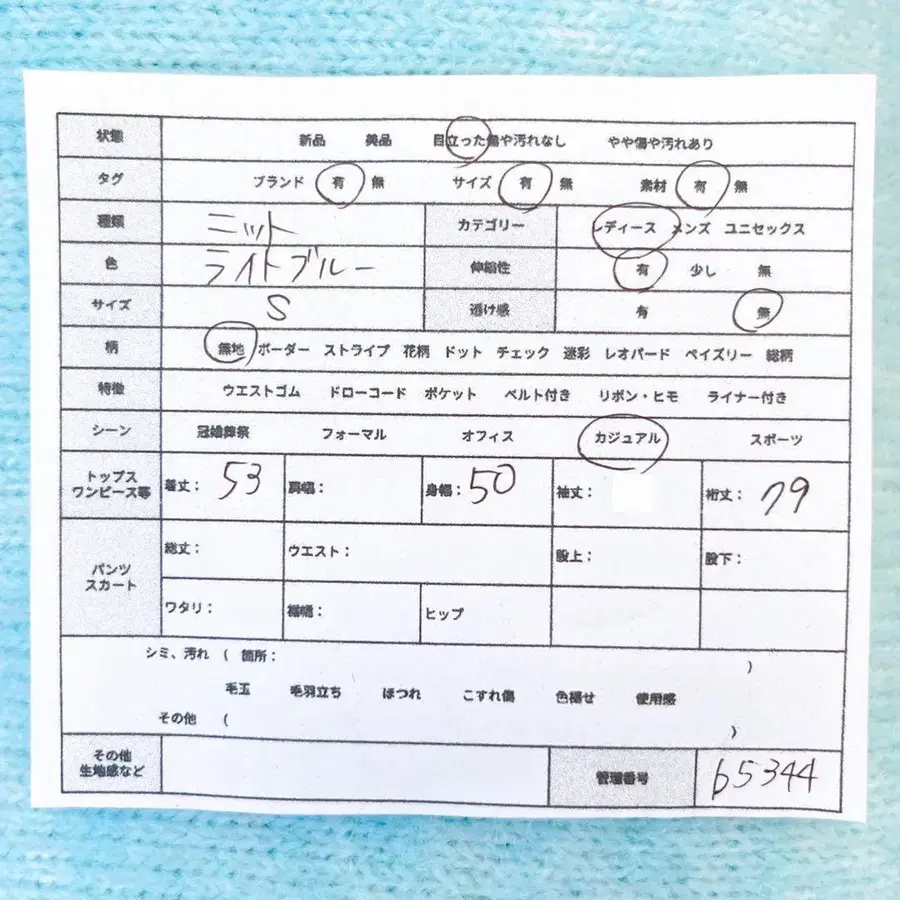 状態 新品 美品 目立った傷や汚れなし やや傷や汚れあり
タグ ブランド 有 無 サイズ 有 無 素材 有 無
種類 ニット カテゴリー レディース メンズ ユニセックス
色 ライトブルー 伸縮性 有 少し 無
サイズ S 透け感 有 無
柄 無地 ボーダー ストライプ 花柄 ドット チェック 迷彩 レオパード ペイズリー 総柄
特徴 ウエストゴム ドローコード ポケット ベルト付き リボン・ヒモ ライナー付き
シーン 冠婚葬祭 フォーマル オフィス カジュアル スポーツ
トップス
ワンピース等 着丈: 53 肩幅: 身幅: 50 袖丈: 裄丈: 79
パンツ
スカート 総丈: ウエスト: 股上: 股下:
ワタリ: 裾幅: ヒップ
シミ、汚れ ( 箇所: )
毛玉 毛羽立ち ほつれ こすれ傷 色褪せ 使用感
その他 ( )
その他
生地感など 管理番号 b5344